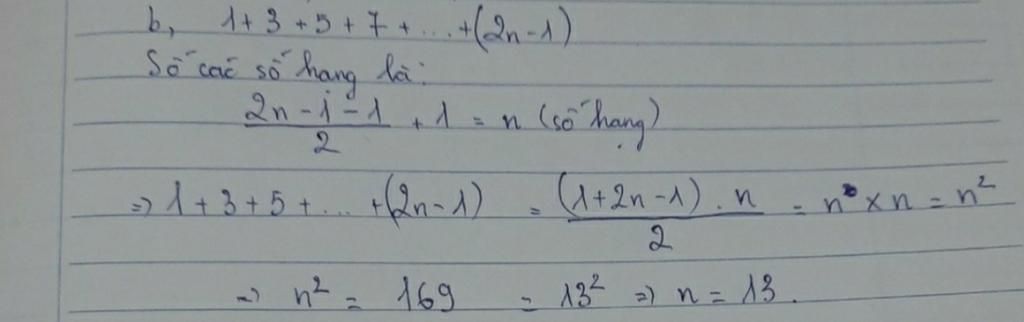 b, 1 + 3 + 5 + 7 + ... + (2n - 1)
Số các số hạng là:
(2n - 1 - 1)/2 + 1 = n (số hạng)
=> 1 + 3 + 5 + ... + (2n - 1) = ((1 + 2n - 1) . n)/2 = n × n = n²
=> n² = 169 = 13² => n = 13.